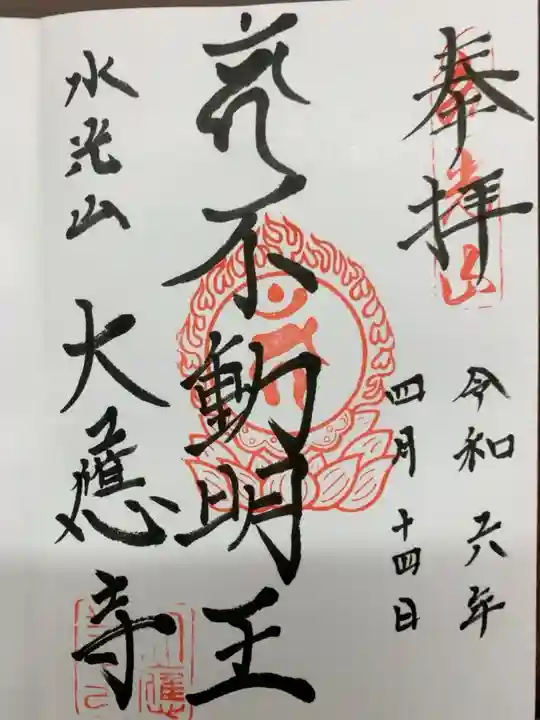 奉拝
令和六年
四月十四日
不動明王
水光山
大應寺